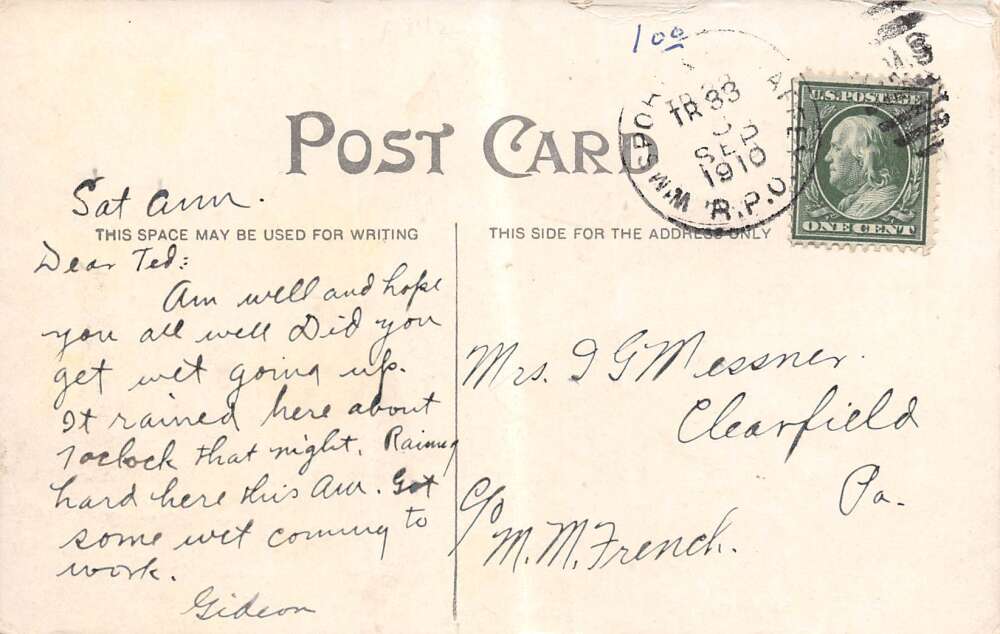 1 00
POST CARD
TR 33
SEP
1910
R.P.O.
U.S. POSTAGE
ONE CENT
Sat am.
THIS SPACE MAY BE USED FOR WRITING
Dear Ted:
Am well and hope
you all well Did you
get wet going up.
It rained here about
7 oclock that night. Rained
hard here this am. Got
some wet coming to
work.
Gideon
THIS SIDE FOR THE ADDRESS ONLY
Mrs. I G Messner.
Clearfield
Pa.
c/o
M. M. French.